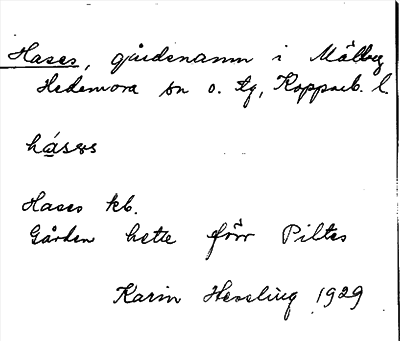 Hases, gårdsnamn i Mälby
Hedemora sn o. tg, Kopparb. l.
hásəs
Hases kb.
Gården hette förr Piltes
Karin Hessling 1929